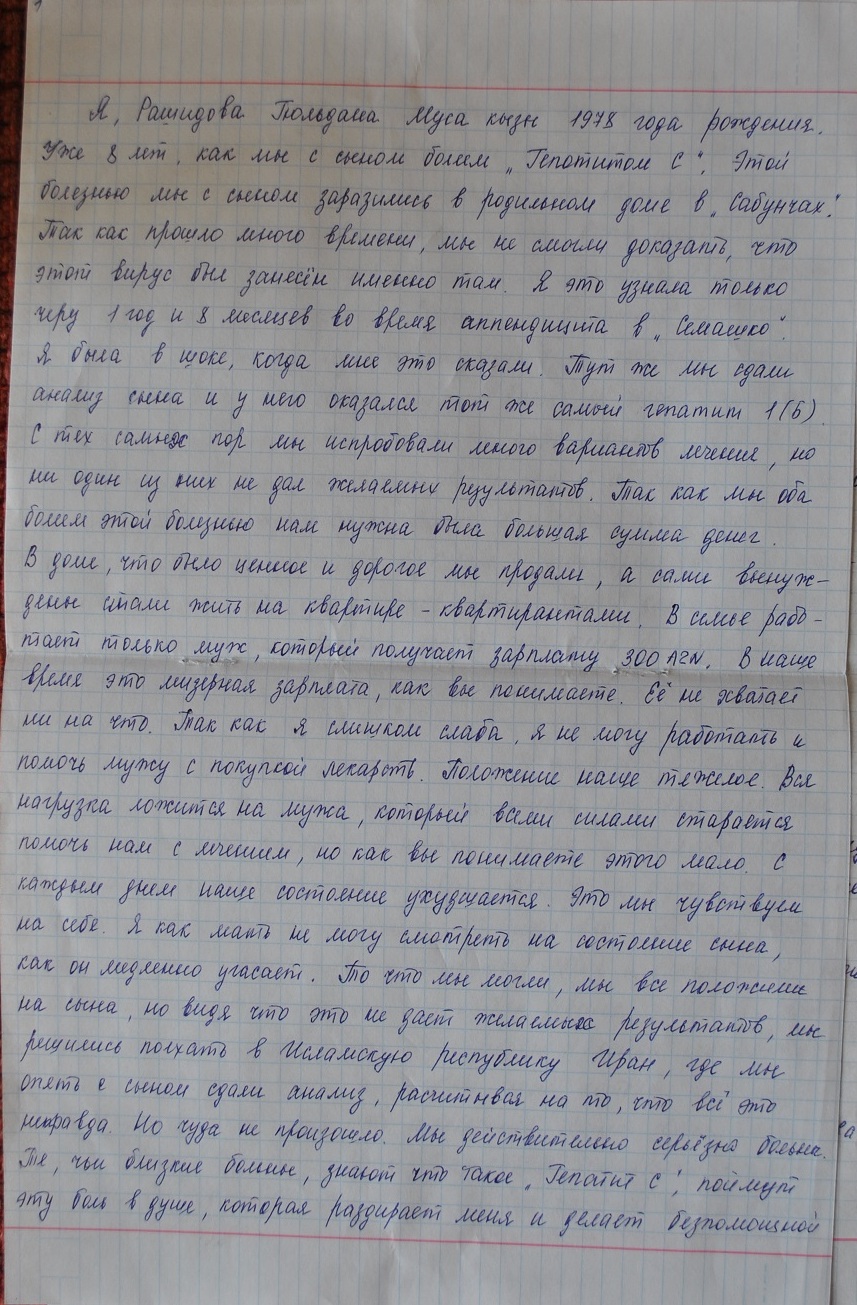 Я, Рашидова Гюльдана Муса кызы 1978 года рождения.
Уже 8 лет, как мы с сыном болеем „Гепатитом С". Этой
болезнью мы с сыном заразились в родильном доме в „Сабунчах".
Так как прошло много времени, мы не смогли доказать, что
этот вирус был занесён именно там. Я это узнала только
черу 1 год и 8 месяцев во время аппендицита в „Семашко".
Я была в шоке, когда мне это сказали. Тут же мы сдали
анализ сына и у него оказался тот же самый гепатит 1(б).
С тех самых пор мы испробовали много вариантов лечения, но
ни один из них не дал желаемых результатов. Так как мы оба
болеем этой болезнью нам нужна была большая сумма денег.
В доме, что было ценное и дорогое мы продали, а сами вынуж-
дены стали жить на квартире - квартирантами. В семье рабо-
тает только муж, который получает зарплату 300 AZN. В наше
время это мизерная зарплата, как вы понимаете. Её не хватает
ни на что. Так как я слишком слаба, я не могу работать и
помочь мужу с покупкой лекарств. Положение наше тяжелое. Вся
нагрузка ложится на мужа, который всеми силами старается
помочь нам с лечением, но как вы понимаете этого мало. С
каждым днем наше состояние ухудшается. Это мы чувствуем
на себе. Я как мать не могу смотреть на состояние сына,
как он медленно угасает. То что мы могли, мы все положили
на сына, но видя что это не дает желаемых результатов, мы
решились поехать в Исламскую республику Иран, где мы
опять с сыном сдали анализ, расчитывая на то, что всё это
неправда. Но чуда не произошло. Мы действительно серьёзно больны.
Те, чьи близкие больны, знают что такое „Гепатит С", поймут
эту боль в душе, которая раздирает меня и делает безпомощной